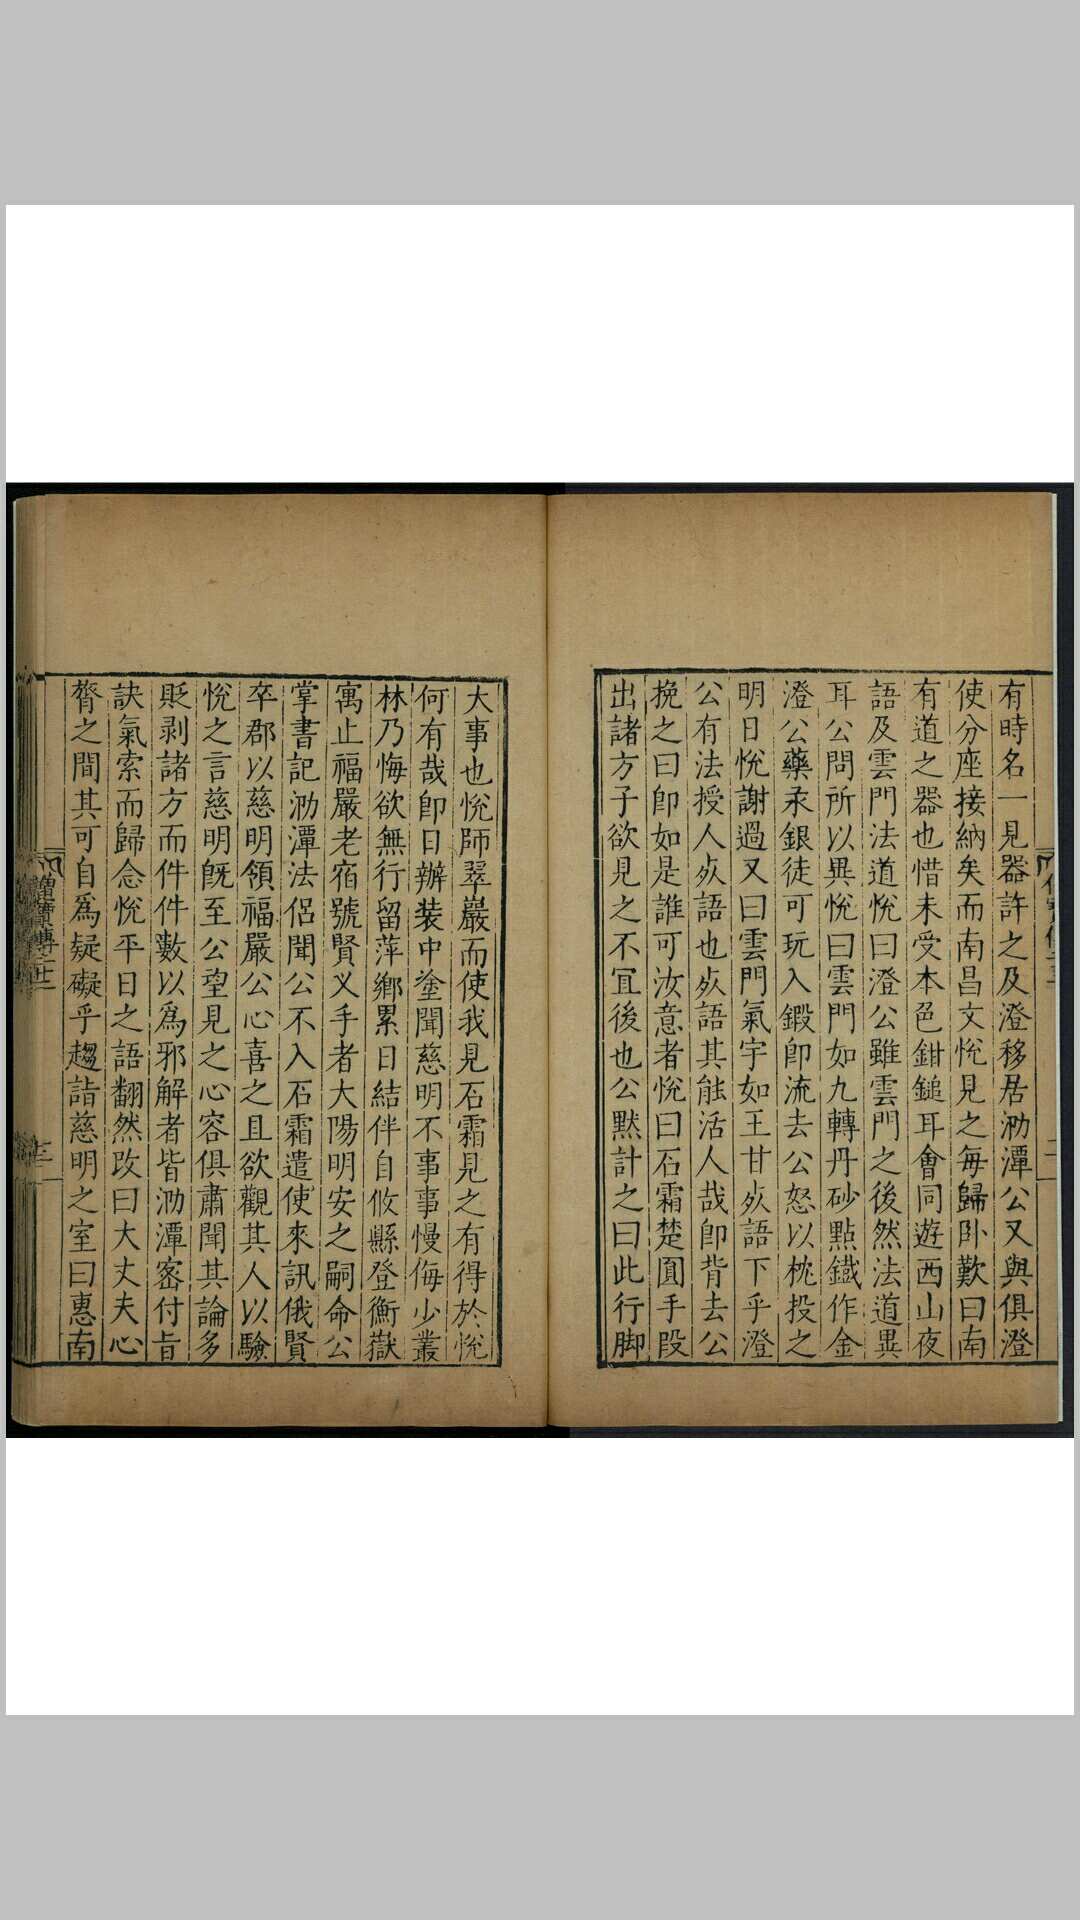 有時名一見器許之及澄移居泐潭公又與俱澄
使分座接納矣而南昌文悅見之每歸卧歎曰南
有道之器也惜未受本色鉗鎚耳會同遊西山夜
語及雲門法道悅曰澄公雖雲門之後然法道異
耳公問所以異悅曰雲門如九轉丹砂點鐵作金
澄公藥汞銀徒可玩入鍛即流去公怒以枕投之
明日悅謝過又曰雲門氣宇如王甘𣦸語下乎澄
公有法授人𣦸語也𣦸語其能活人哉即背去公
挽之曰即如是誰可汝意者悅曰石霜楚圓手段
出諸方子欲見之不冝後也公默計之曰此行脚
大事也悅師翠巖而使我見石霜見之有得於悅
何有哉即日辦装中塗聞慈明不事事慢侮少叢
林乃悔欲無行留萍鄉累日結伴自攸縣登衡嶽
寓止福嚴老宿號賢叉手者大陽明安之嗣命公
掌書記泐潭法侣聞公不入石霜遣使來訊俄賢
卒郡以慈明領福嚴公心喜之且欲觀其人以驗
悅之言慈明旣至公望見之心容俱肅聞其論多
貶剥諸方而件件數以爲邪解者皆泐潭密付旨
訣氣索而歸念悅平日之語翻然改曰大丈夫心
膂之間其可自爲疑礙乎趨詣慈明之室曰惠南
僧寶傳二十二